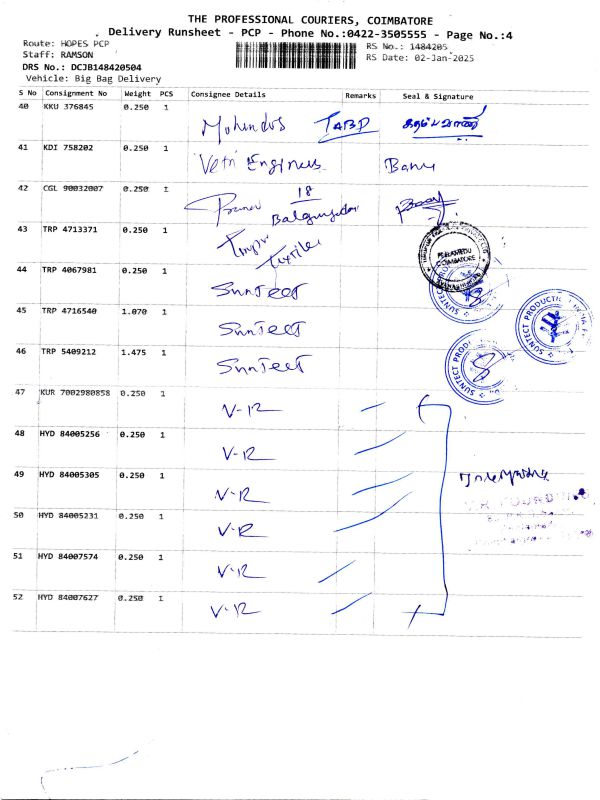 THE PROFESSIONAL COURIERS, COIMBATORE
Delivery Runsheet - PCP - Phone No.:0422-3505555 - Page No.:4
Route: HOPES PCP
RS No.: 1484205
Staff: RAMSON
RS Date: 02-Jan-2025
DRS No.: DCJB148420504
Vehicle: Big Bag Delivery
S No Consignment No Weight PCS Consignee Details Remarks Seal & Signature
40 KKU 376845 0.250 1
41 KDI 758202 0.250 1 Vetri Engineers Banu
42 CGL 90032007 0.250 1 18
43 TRP 4713371 0.250 1
PEELAMEDU
COIMBATORE
44 TRP 4067981 0.250 1 Suntect
45 TRP 4716540 1.070 1 Suntect
SUNTECT PRODUCTS
46 TRP 5409212 1.475 1 Suntect
47 KUR 7002980858 0.250 1 V-12
48 HYD 84005256 0.250 1 V-12
49 HYD 84005305 0.250 1 V-12
50 HYD 84005231 0.250 1 V-12
51 HYD 84007574 0.250 1 V-12
52 HYD 84007627 0.250 1 V-12